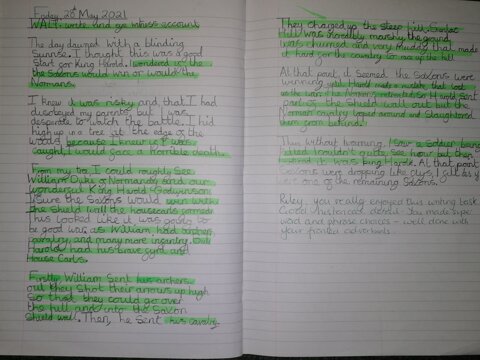 Friday 20th May 2021
WALT: write and eye witness account
The day dawned with a blinding
Sunrise. I thought this was a good
Start for King Harold. I wondered if the
the Saxons would win or would the
Normans.
I knew it was risky and that I had
disobeyed my parents, but I was
desperate to watch the battle. I hid
high up in a tree at the edge of the
wood because I knew if I was
caught, I would face a horrible death.
From my tree I could roughly see
William Duke of Normandy and our
wonderful King Harold Godwinson
I sure the Saxons would even with
the Shield wall the housecarls formed
This looked like it was going to
be good was as William had archers
cavalry, and many more infantry. But
Harold had his brave fyrd and
House Carls.
Firstly William Sent his archers
out they Shot their arrows up high
So that they could go over
the hill and into the Saxon
Shield wall. Then, he sent his cavalry.
They charged up the steep hill. Senlac
Hill was incredibly marshy, the ground
was churned and very muddy that made
it hard for the cavalry to race up the hill
At that point, it seemed the Saxons were
winning until Harold made a mistake that
part of the shield wall out but the
Norman cavalry looped around and Slaughtered
them from behind.
Then without warning, I saw a Soldier
I couldn't quite see how but then
I it was King Harold. At that point
Saxons were dropping like flys, I
one of the remaining Saxons.
Riley, you really enjoyed this writing task.
Good historical detail. You made super
word and phrase choices - well done with
your fronted adverbials.